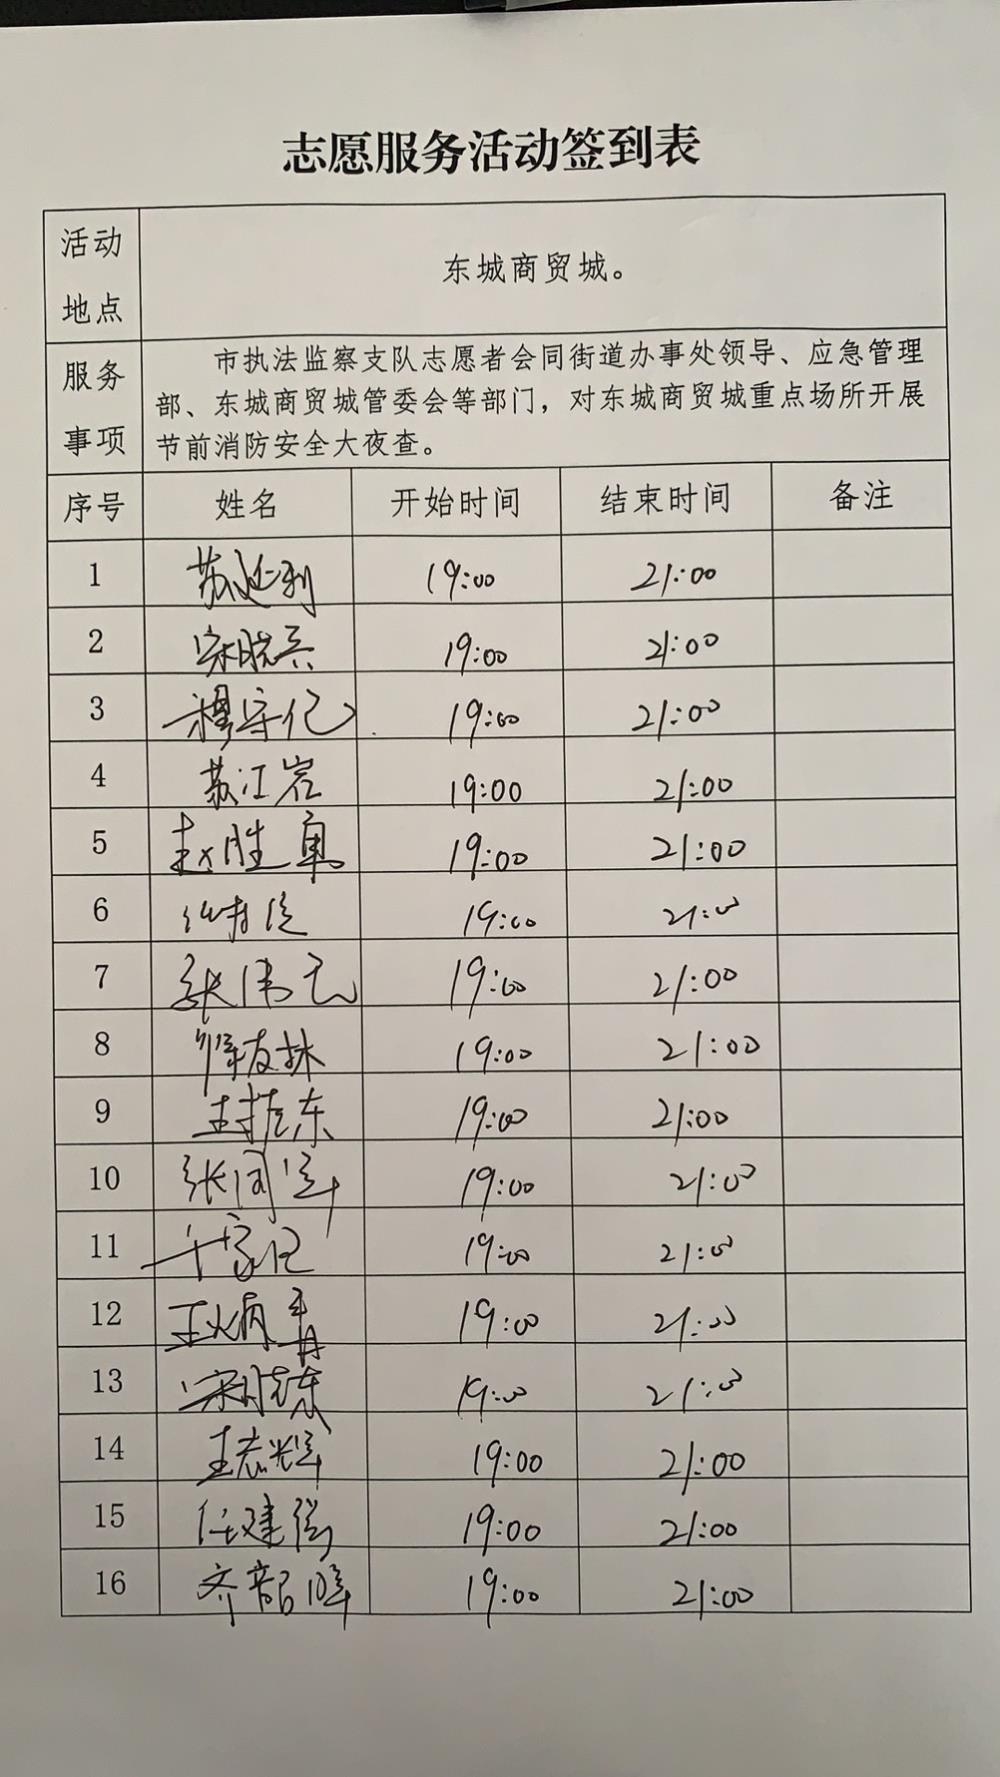 志愿服务活动签到表
活动地点 东城商贸城。
服务事项 市执法监察支队志愿者会同街道办事处领导、应急管理
部、东城商贸城管委会等部门，对东城商贸城重点场所开展
节前消防安全大夜查。
序号 姓名 开始时间 结束时间 备注
1 苏延利 19:00 21:00
2 宋晓兵 19:00 21:00
3 穆守亿 19:00 21:00
4 苏江岩 19:00 21:00
5 赵胜军 19:00 21:00
6 19:00 21:00
7 张伟 19:00 21:00
8 解友林 19:00 21:00
9 王振东 19:00 21:00
10 张同军 19:00 21:00
11 19:00 21:00
12 王炳 19:00 21:00
13 宋晓东 19:00 21:00
14 王志辉 19:00 21:00
15 任建强 19:00 21:00
16 齐韶晖 19:00 21:00